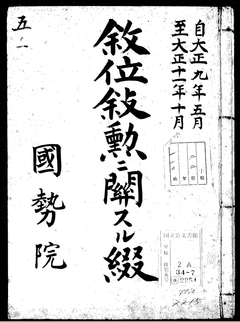 自大正九年五月
至大正十一年十月
敘位敍勲ニ關スル綴
國勢院
五一
国立公文書館
2A
34-7